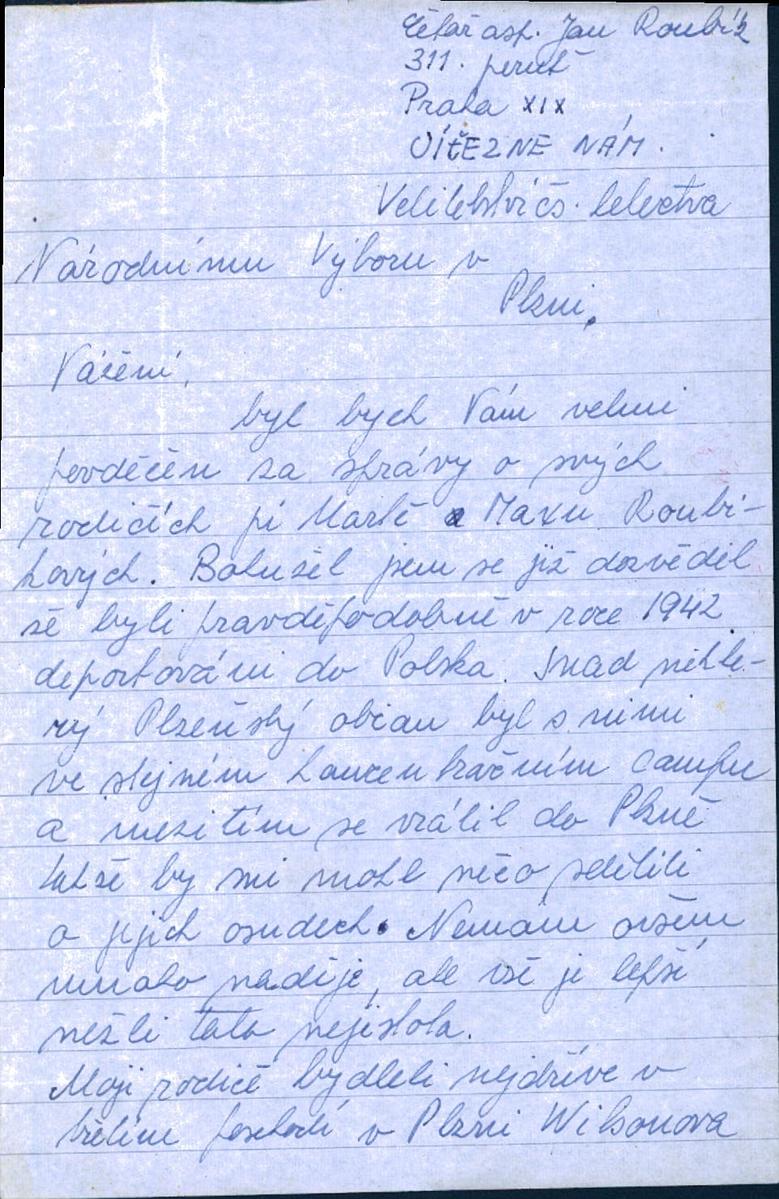 četař asp. Jan Roubík
311. peruť
Praha XIX
VÍTĚZNÉ NÁM.
Velitelství čs. letectva
Národnímu Výboru v
Plzni.
Vážení,
byl bych Vám velmi
povděčen za správy o svých
rodičích pí Martě a Maxu Roubí-
kových. Bohužel jsem se již dozvěděl
že byli pravděpodobně v roce 1942
deportováni do Polska. Snad někte-
rý Plzeňský občan byl s nimi
ve stejném koncentračním campu
a mezitím se vrátil do Plzně
takže by mi mohl něco sděliti
o jejich osudech. Nemám ovšem
mnoho naděje, ale vše je lepší
nežli tato nejistota.
Moji rodiče bydleli nejdříve v
třetím poschodí v Plzni Wilsonova